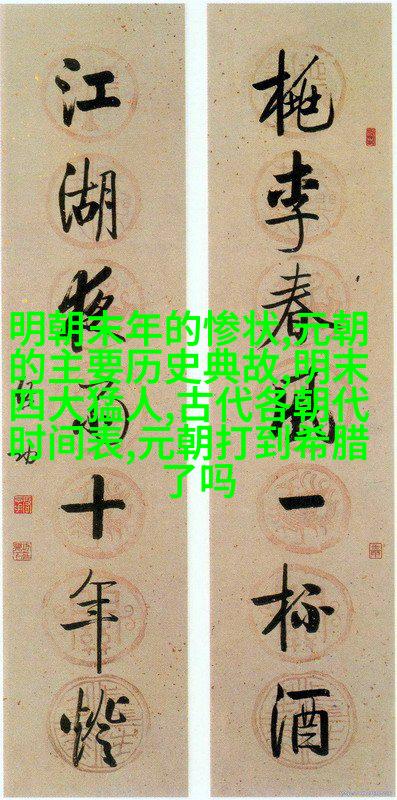 桃李春風一杯酒
江湖夜雨十年燈
明朝末年的惨状,元朝
的主要历史典故,明末
四大猛人,古代各朝代
时间表,元朝打到希腊
了吗